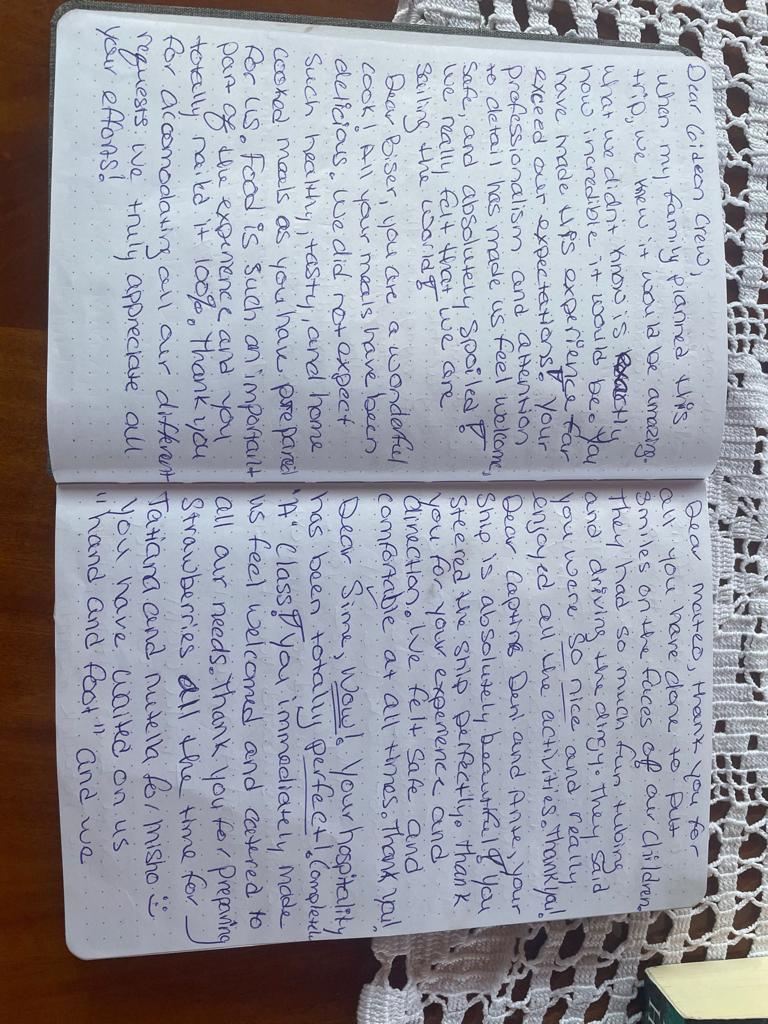 Dear Gideon Crew,
when my family planned this
trip, we knew it would be amazing.
What we didn't know is exactly
how incredible it would be. You
have made this experience far
exceed our expectations. Your
professionalism and attention
to detail has made us feel welcome,
safe, and absolutely spoiled!
We really felt that we are
sailing the world!
Dear Biser, you are a wonderful
cook! All your meals have been
delicious. We did not expect
such healthy, tasty, and home
cooked meals as you have prepared
for us. Food is such an important
part of the experience and you
totally nailed it 100%. Thank you
for accomodating all our different
requests. We truly appreciate all
your efforts!
Dear mateo, thank you for
all you have done to put
smiles on the faces of our children.
They had so much fun tubing
and driving the dingy. They said
you were so nice and really
enjoyed all the activities. Thank you!
Dear Captine Deni and Ante, your
ship is absolutely beautiful! You
steered the ship perfectly. Thank
you for your experience and
direction. We felt safe and
comfortable at all times. Thank you!
Dear Sime, Wow! Your hospitality
has been totally perfect! Completely
"A" class! You immediately made
us feel welcomed and catered to
all our needs. Thank you for preparing
strawberries all the time for
Tatiana and nutella for misho :)
You have waited on us
"hand and foot" and we